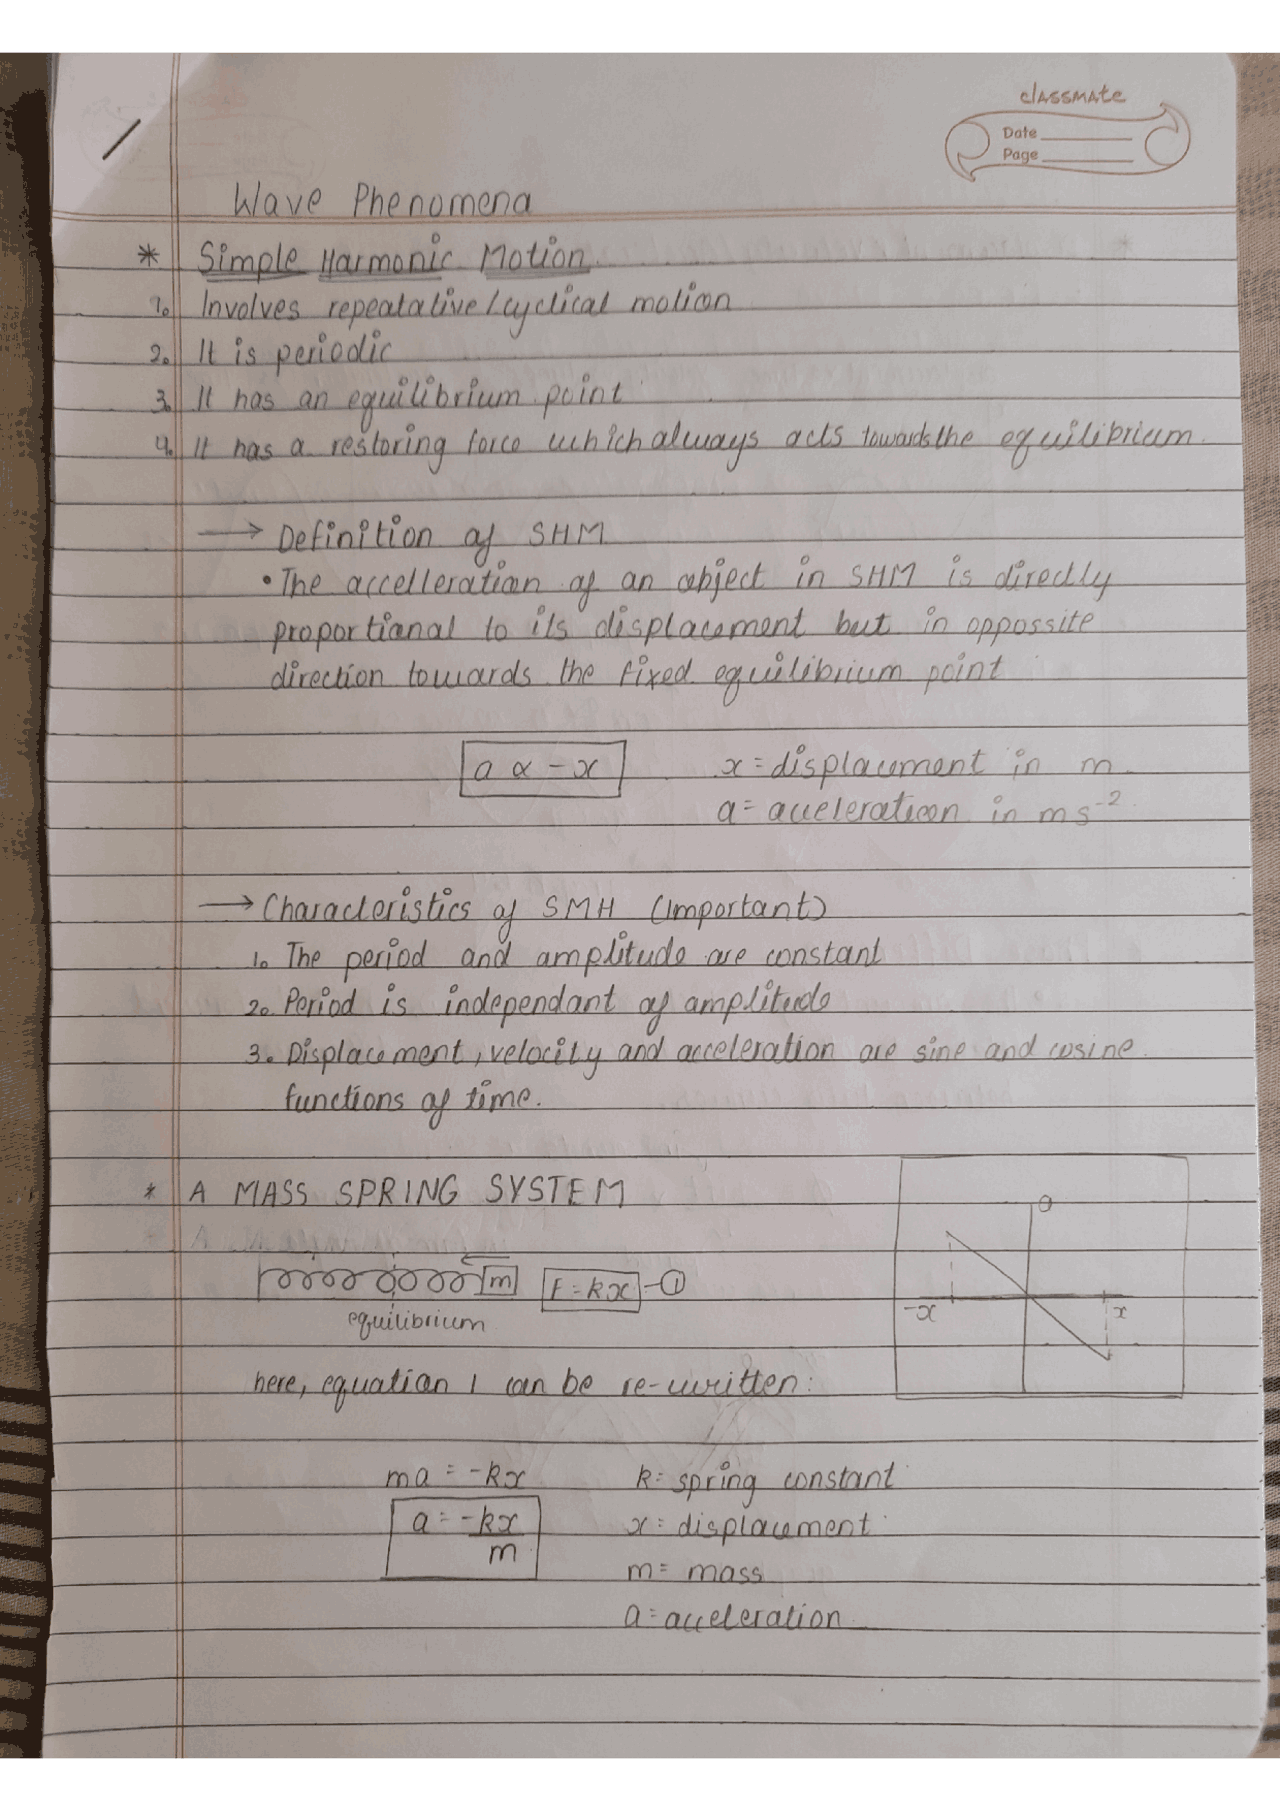 classmate
Date
Page
Wave Phenomena
* Simple Harmonic Motion
1. Involves repeatative/cyclical motion
2. It is periodic
3. It has an equilibrium point
4. It has a restoring force which always acts towards the equilibrium
→ Definition of SHM
• The accelleration of an object in SHM is directly
proportional to its displacement but in oppossite
direction towards the fixed equilibrium point
a ∝ -x
x = displacement in m
a = acceleration in ms⁻²
→ Characteristics of SMH (Important)
1. The period and amplitude are constant
2. Period is independant of amplitude
3. Displacement, velocity and acceleration are sine and cosine
functions of time.
* A MASS SPRING SYSTEM
a
m F = kx - ①
-x x
equilibrium
here, equation 1 can be re-written:
ma = -kx k = spring constant
a = -kx x = displacement
m m = mass
a = acceleration